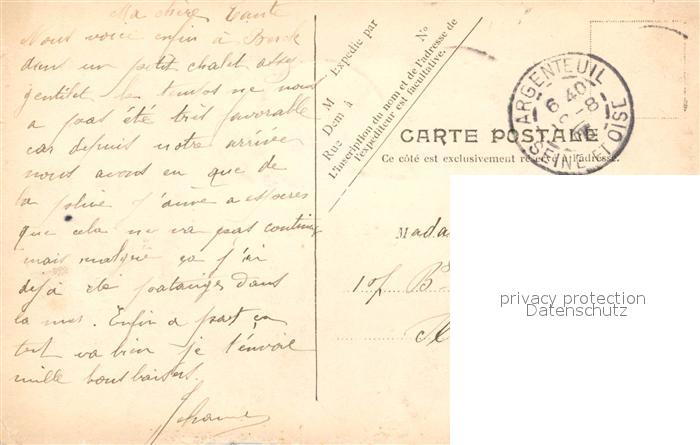 Ma chère Tante
Nous voici enfin à Berck
dans un petit chalet assez
gentillet le temps ne nous
a pas été très favorable
car depuis notre arrivée
nous avons eu que de
la pluie j'aime a espérer
que cela ne va pas continuer
mais malgré ça j'ai
déjà été patauger dans
la mer. Enfin a part ça
tout va bien je t'envoie
mille bons baisers.
Expédié par
M
Dem à
Rue
No
L'inscription du nom et de l'adresse de
l'expéditeur est facultative.
CARTE POSTALE
Ce côté est exclusivement réservé à l'adresse.
ARGENTEUIL
6 40
8
SEINE-ET-OISE
Mada
B
privacy protection
Datenschutz